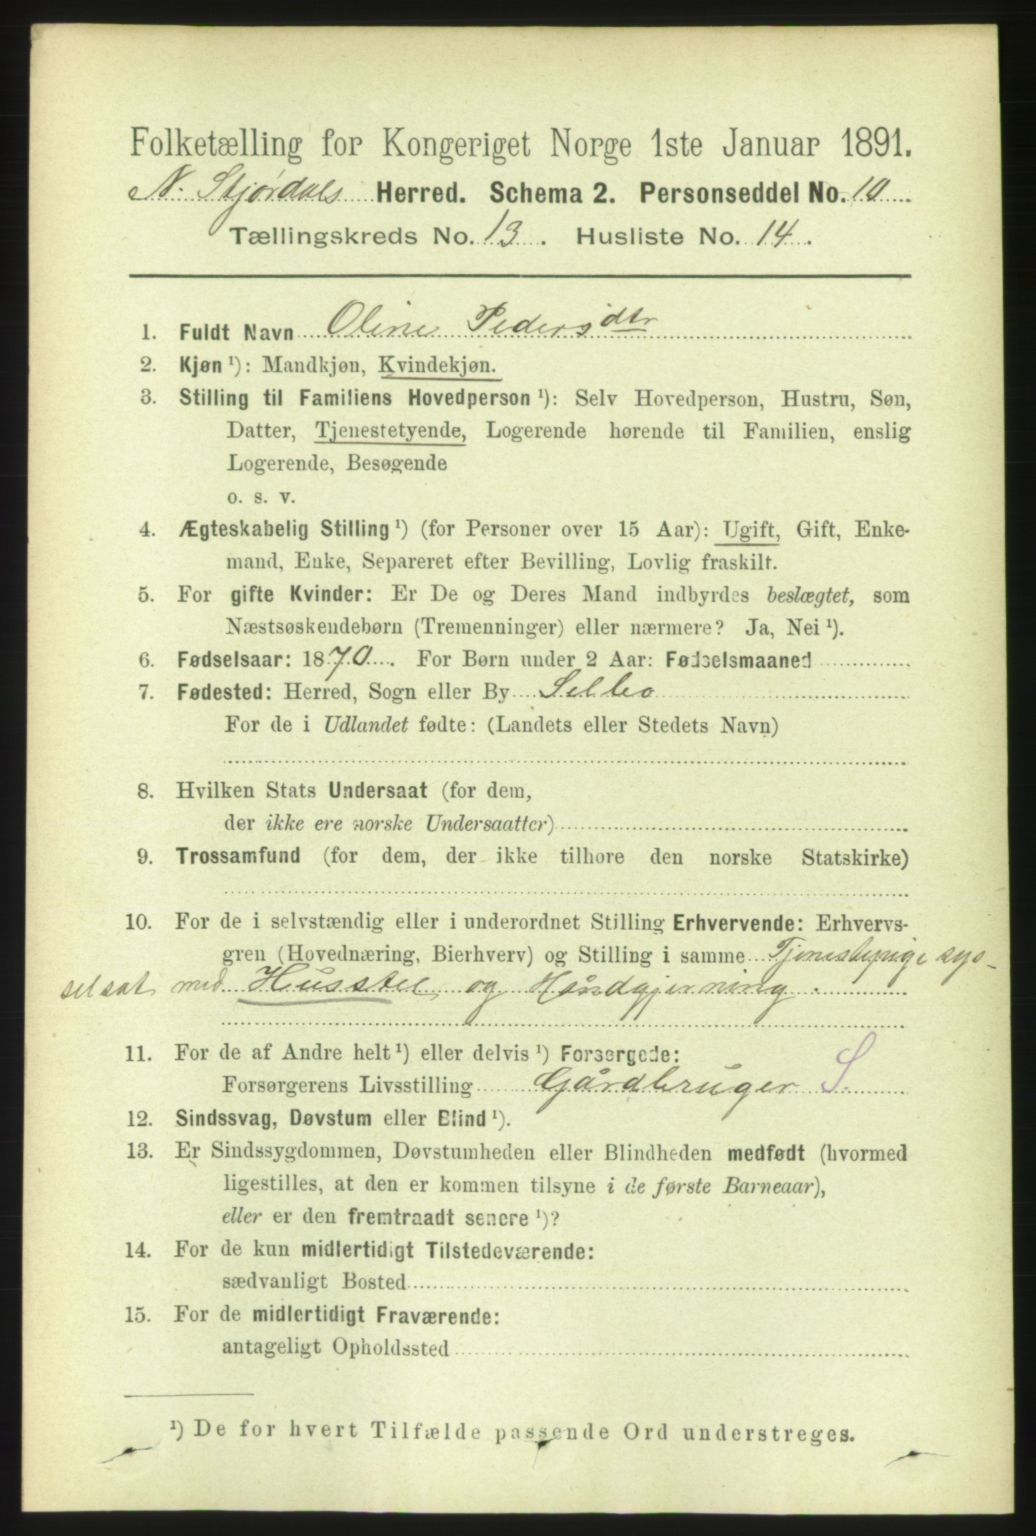 Folketælling for Kongeriget Norge 1ste Januar 1891.
N. Stjørdals Herred. Schema 2. Personseddel No. 10
Tællingskreds No. 13. Husliste No. 14.
1. Fuldt Navn Oline Pedersdtr
2. Kjøn ¹): Mandkjøn, Kvindekjøn.
3. Stilling til Familiens Hovedperson ¹): Selv Hovedperson, Hustru, Søn,
Datter, Tjenestetyende, Logerende hørende til Familien, enslig
Logerende, Besøgende
o. s. v.
4. Ægteskabelig Stilling ¹) (for Personer over 15 Aar): Ugift, Gift, Enke-
mand, Enke, Separeret efter Bevilling, Lovlig fraskilt.
5. For gifte Kvinder: Er De og Deres Mand indbyrdes beslægtet, som
Næstsøskendebørn (Tremenninger) eller nærmere? Ja, Nei ¹).
6. Fødselsaar: 1870. For Børn under 2 Aar: Fødselsmaaned
7. Fødested: Herred, Sogn eller By Selbo
For de i Udlandet fødte: (Landets eller Stedets Navn)
8. Hvilken Stats Undersaat (for dem,
der ikke ere norske Undersaatter)
9. Trossamfund (for dem, der ikke tilhøre den norske Statskirke)
10. For de i selvstændig eller i underordnet Stilling Erhvervende: Erhvervs-
gren (Hovednæring, Bierhverv) og Stilling i samme Tjenestepige sys-
selsat med Husstel og Håndgjerning.
11. For de af Andre helt ¹) eller delvis ¹) Forsørgede:
Forsørgerens Livsstilling Gårdbruger S.
12. Sindssvag, Døvstum eller Blind ¹).
13. Er Sindssygdommen, Døvstumheden eller Blindheden medfødt (hvormed
ligestilles, at den er kommen tilsyne i de første Barneaar),
eller er den fremtraadt senere ¹)?
14. For de kun midlertidigt Tilstedeværende:
sædvanligt Bosted
15. For de midlertidigt Fraværende:
antageligt Opholdssted
¹) De for hvert Tilfælde passende Ord understreges.